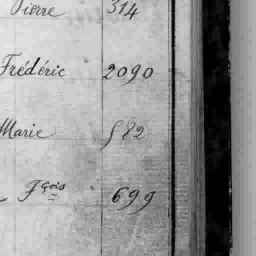 Pierre 314
Frédéric 2090
Marie 582
Fçois 699